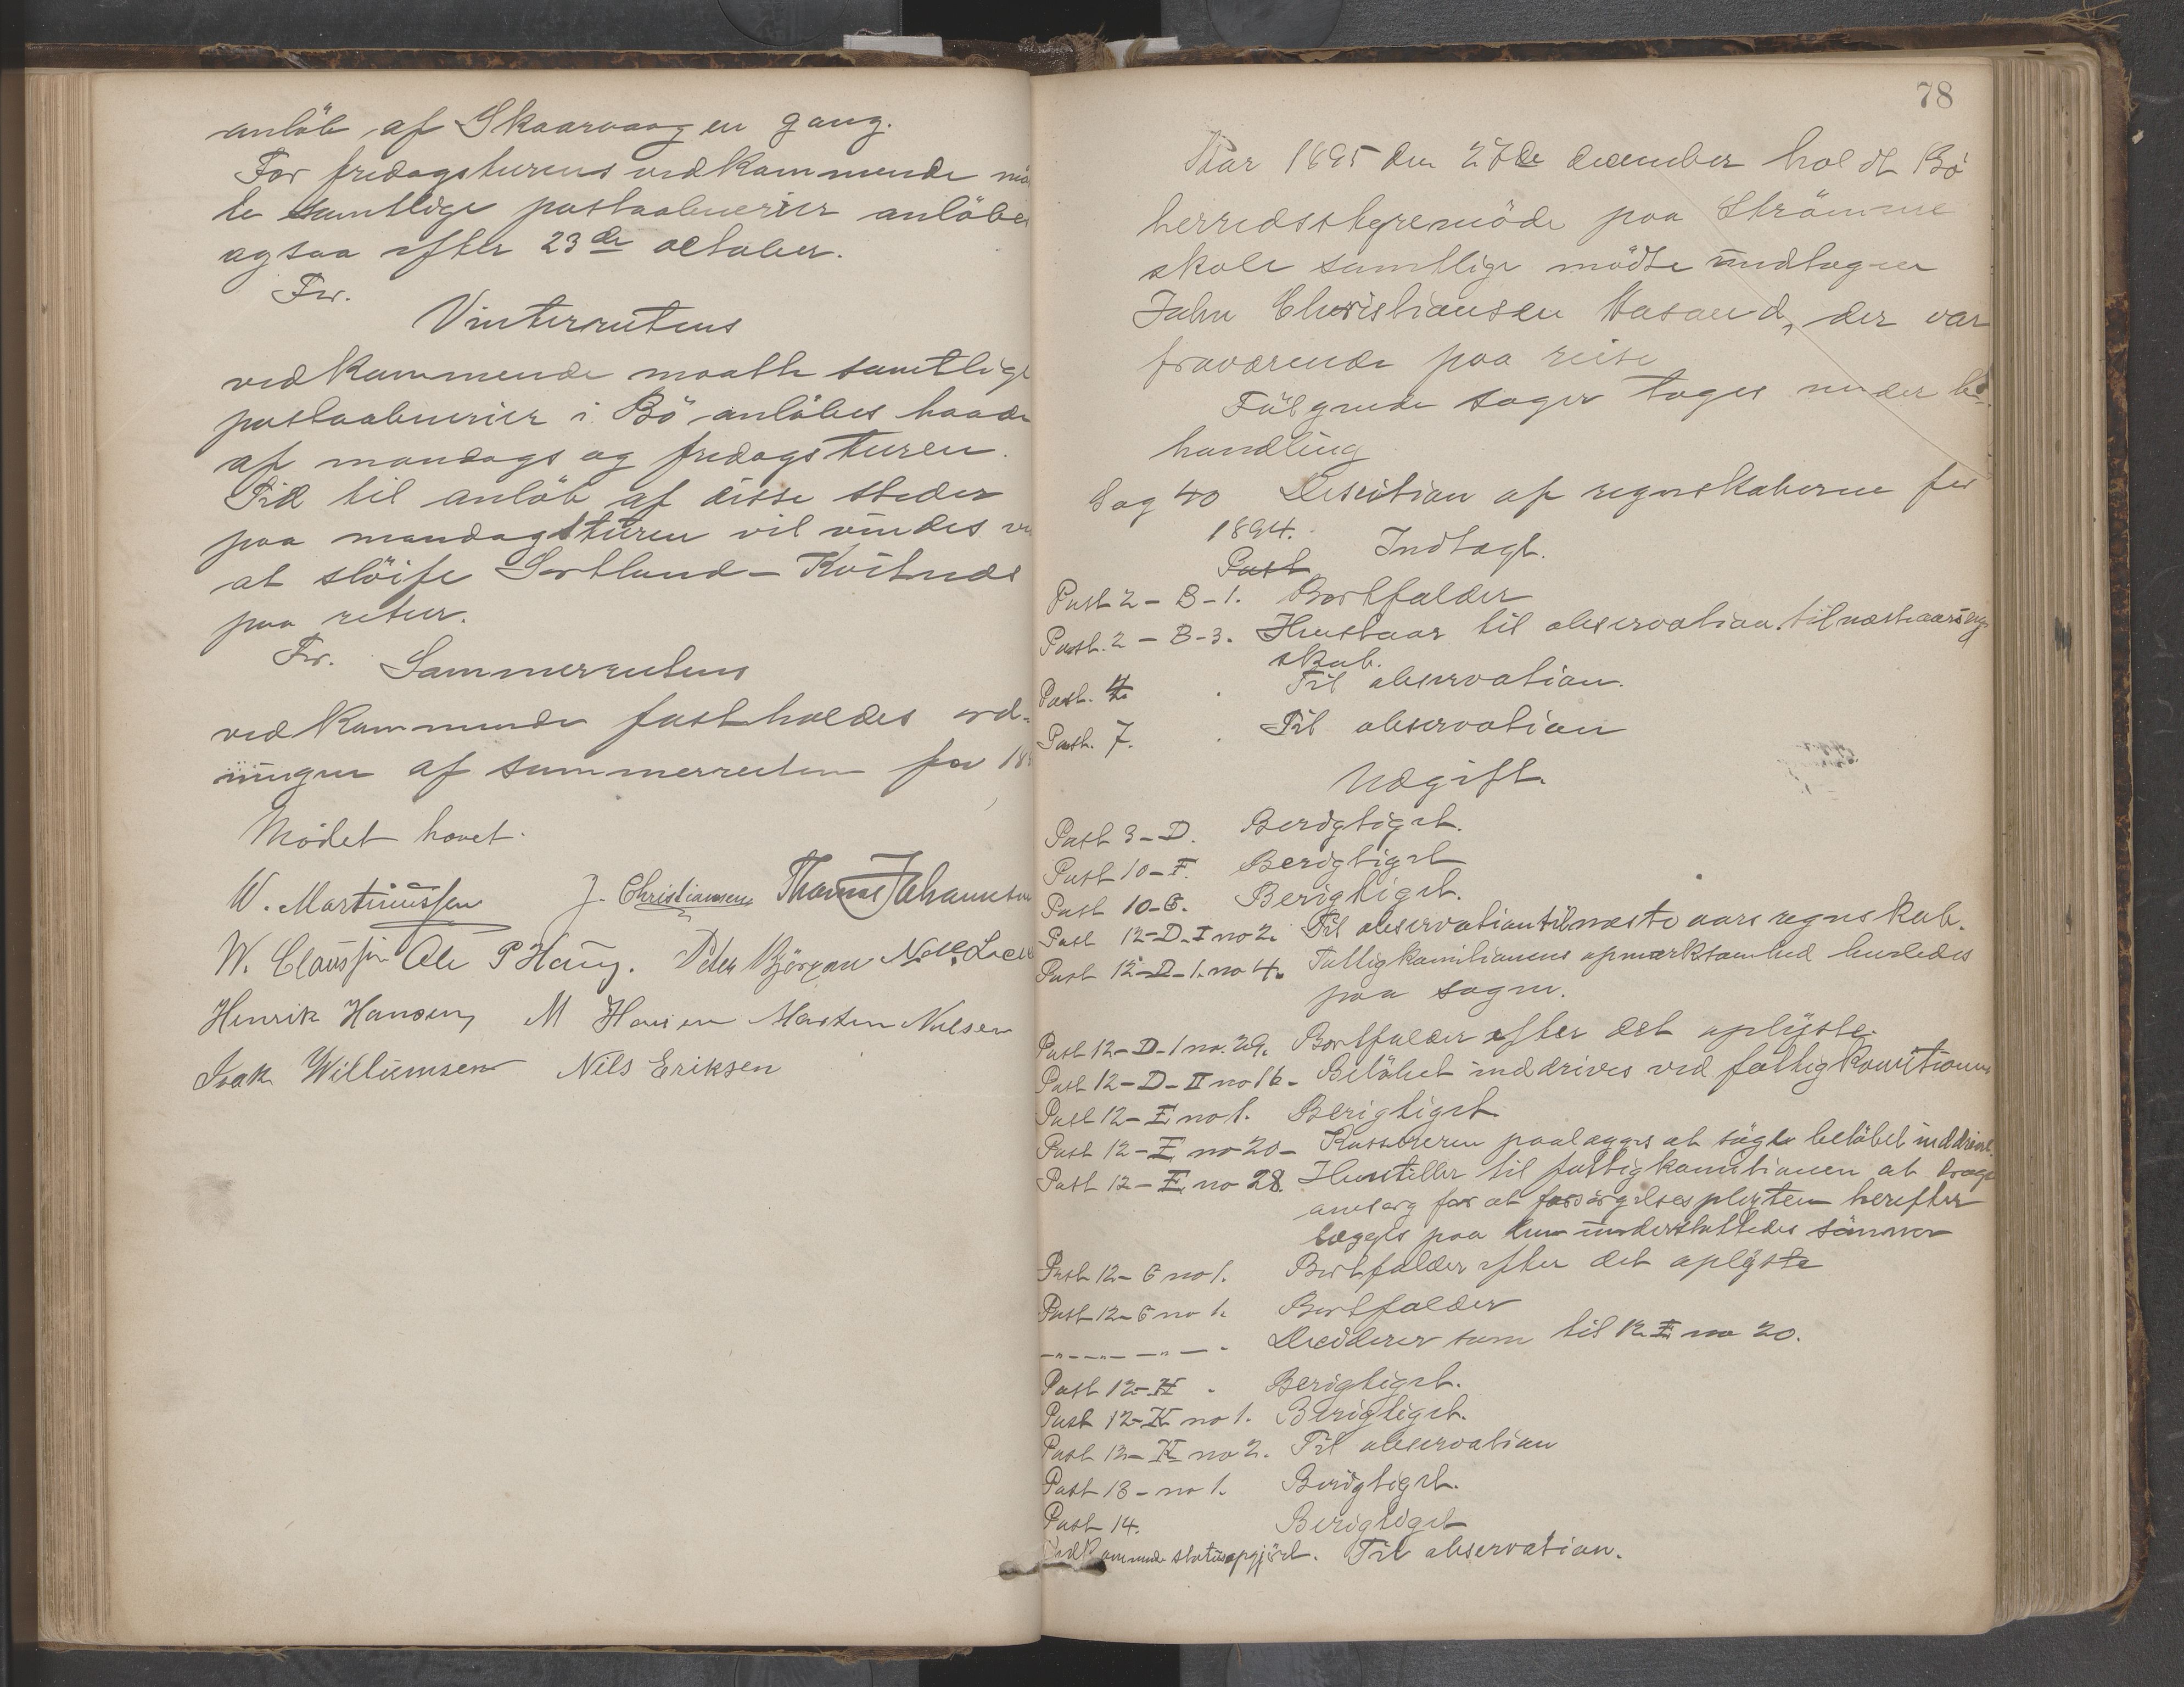 anløb af Skaarvaag en gang.
For fredagsturens vedkommende maa
te samtlige postaabnerier anløbes
ogsaa efter 23de october.
For
Vinterrutens
vedkommende maatte samtlige
postaabnerier i Bö anløbes baade
af mandags og fredagsturen.
Tid til anløb af disse steder
paa mandagsturen vil vindes ve
at sløife Sortland - Kvitnes
paa retur.
For Sommerrutens
vedkommende fastholdes ord-
ningen af sommerruten for 18
Mödet hævet.
W. Martinussen J. Christiansen Thomas Johannsen
W. Claussen Ole P Haug. Peter Björgan
Henrik Hansen M Hansen Morten Nilsen
Isak Willumsen Nils Eriksen
78
Aar 1895 den 27de december holdt Bö
herredsstyremöde paa Strömme
skole samtlige mödte undtagen
John Christiansen Vasaud, der var
fraværende paa reise
Fölgende sager toges under be-
handling
Sag 40 Desition af regnskaberne for
1894.
Post Indtægt.
Post 2 - B - 1. Bortfalder
Post. 2 - B - 3. Henstaar til observation til næste aars regn
skab.
Post. 4 . Til observation.
Post. 7. . Til observation
Udgift.
Post 3 - D. Berigtiget.
Post 10 - F. Berigtiget
Post 10 - G. Berigtiget.
Post 12 - D - I no 2. Til observation til næste aars regnskab.
Post 12 - D - 1. no 4. Fattigkomitionens opmærksomhed henledes
paa sagen.
Post 12 - D - 1 no. 29. Bortfalder efter det oplyste.
Post 12 - D - II no 16 - Belöbet inddrives ved fattigkomitionen
Post 12 - E no 1. Berigtiget
Post 12 - E no 20 - Kassereren paalægges at söge belöbet inddrevet.
Post 12 - E no 28. Henstiller til fattigkomitionen at drage
omsorg for at forsörgelsespligten herefter
lægges paa den understöttedes sönner
Post 12 - G no 1. Bortfalder efter det oplyste
Post 12 - G no 1. Bortfalder
- " - - " - - " - - . Desiderer som til 12 E no 20.
Post 12 - H . Berigtiget.
Post 12 - K no 1. Berigtiget.
Post 12 - K no 2. Til observation
Post 13 - no 1. Berigtiget.
Post 14. Berigtiget
Vedkommende statusopgjörd. Til observation.